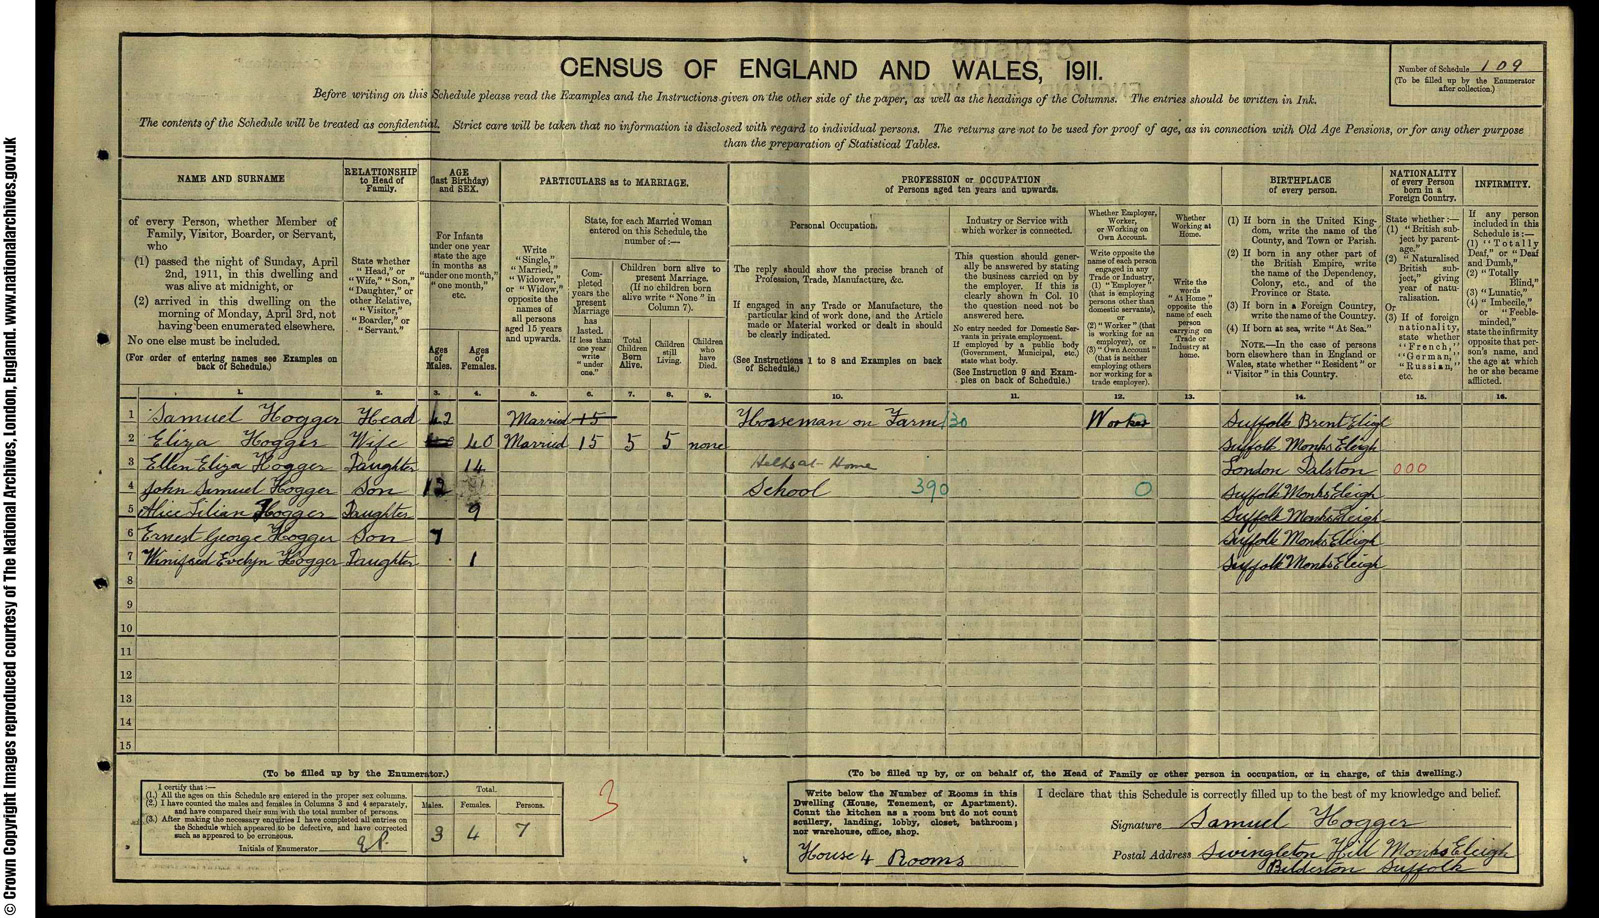 © Crown Copyright Images reproduced courtesy of The National Archives, London, England. www.nationalarchives.gov.uk
CENSUS OF ENGLAND AND WALES, 1911.
Number of Schedule 109
(To be filled up by the Enumerator
after collection.)
Before writing on this Schedule please read the Examples and the Instructions given on the other side of the paper, as well as the headings of the Columns. The entries should be written in Ink.
The contents of the Schedule will be treated as confidential. Strict care will be taken that no information is disclosed with regard to individual persons. The returns are not to be used for proof of age, as in connection with Old Age Pensions, or for any other purpose
than the preparation of Statistical Tables.
NAME AND SURNAME
of every Person, whether Member of
Family, Visitor, Boarder, or Servant,
who
(1) passed the night of Sunday, April
2nd, 1911, in this dwelling and
was alive at midnight, or
(2) arrived in this dwelling on the
morning of Monday, April 3rd, not
having been enumerated elsewhere.
No one else must be included.
(For order of entering names see Examples on
back of Schedule.)
RELATIONSHIP
to Head of
Family.
State whether
"Head," or
"Wife," "Son,"
"Daughter," or
other Relative,
"Visitor,"
"Boarder," or
"Servant."
AGE
(last Birthday)
and SEX.
For Infants
under one year
state the age
in months as
"under one month,"
"one month,"
etc.
Ages
of
Males.
Ages
of
Females.
PARTICULARS as to MARRIAGE.
Write
"Single,"
"Married,"
"Widower,"
or "Widow,"
opposite the
names of
all persons
aged 15 years
and upwards.
State, for each Married Woman
entered on this Schedule, the
number of:—
Completed
years the
present
Marriage
has
lasted.
If less than
one year
write
"under
one."
Children born alive to
present Marriage.
(If no children born
alive write "None" in
Column 7).
Total
Children
Born
Alive.
Children
still
Living.
Children
who
have
Died.
PROFESSION or OCCUPATION
of Persons aged ten years and upwards.
Personal Occupation.
The reply should show the precise branch of
Profession, Trade, Manufacture, &c.
If engaged in any Trade or Manufacture, the
particular kind of work done, and the Article
made or Material worked or dealt in should
be clearly indicated.
(See Instructions 1 to 8 and Examples on back
of Schedule.)
Industry or Service with
which worker is connected.
This question should generally
be answered by stating
the business carried on by
the employer. If this is
clearly shown in Col. 10
the question need not be
answered here.
No entry needed for Domestic Servants
in private employment.
If employed by a public body
(Government, Municipal, etc.)
state what body.
(See Instruction 9 and Examples
on back of Schedule.)
Whether Employer,
Worker,
or Working on
Own Account.
Write opposite the
name of each person
engaged in any
Trade or Industry,
(1) "Employer"
(that is employing
persons other than
domestic servants),
or
(2) "Worker" (that
is working for an
employer), or
(3) "Own Account"
(that is neither
employing others
nor working for a
trade employer).
Whether
Working at
Home.
Write the
words
"At Home"
opposite the
name of each
person
carrying on
Trade or
Industry at
home.
BIRTHPLACE
of every person.
(1) If born in the United Kingdom,
write the name of the
County, and Town or Parish.
(2) If born in any other part of
the British Empire, write
the name of the Dependency,
Colony, etc., and of the
Province or State.
(3) If born in a Foreign Country,
write the name of the Country.
(4) If born at sea, write "At Sea."
NOTE.—In the case of persons
born elsewhere than in England or
Wales, state whether "Resident" or
"Visitor" in this Country.
NATIONALITY
of every Person
born in a
Foreign Country.
State whether:—
(1) "British subject
by parentage."
(2) "Naturalised
British subject,"
giving
year of naturalisation.
Or
(3) If of foreign
nationality,
state whether
"French,"
"German,"
"Russian,"
etc.
INFIRMITY.
If any person
included in this
Schedule is:—
(1) "Totally
Deaf," or "Deaf
and Dumb,"
(2) "Totally
Blind,"
(3) "Lunatic,"
(4) "Imbecile,"
or "Feeble-
minded,"
state the infirmity
opposite that person's
name, and
the age at which
he or she became
afflicted.
1. 2. 3. 4. 5. 6. 7. 8. 9. 10. 11. 12. 13. 14. 15. 16.
1 Samuel Hogger Head 42 Married 15 Horseman on Farm 130 Worker Suffolk Brent Eligh
2 Eliza Hogger Wife 40 Married 15 5 5 none Suffolk Monks Eleigh
3 Ellen Eliza Hogger Daughter 14 Helps at Home London Dalston 000
4 John Samuel Hogger Son 12 School 390 0 Suffolk Monks Eleigh
5 Alice Lilian Hogger Daughter 9 Suffolk Monks Eleigh
6 Ernest George Hogger Son 7 Suffolk Monks Eleigh
7 Winifred Evelyn Hogger Daughter 1 Suffolk Monks Eleigh
8
9
10
11
12
13
14
15
(To be filled up by the Enumerator.)
I certify that:—
(1.) All the ages on this Schedule are entered in the proper sex columns.
(2.) I have counted the males and females in Columns 3 and 4 separately,
and have compared their sum with the total number of persons.
(3.) After making the necessary enquiries I have completed all entries on
the Schedule which appeared to be defective, and have corrected
such as appeared to be erroneous.
Initials of Enumerator EP.
Total.
Males. Females. Persons.
3 4 7
3
(To be filled up by, or on behalf of, the Head of Family or other person in occupation, or in charge, of this dwelling.)
Write below the Number of Rooms in this
Dwelling (House, Tenement, or Apartment).
Count the kitchen as a room but do not count
scullery, landing, lobby, closet, bathroom;
nor warehouse, office, shop.
House 4 Rooms
I declare that this Schedule is correctly filled up to the best of my knowledge and belief.
Signature Samuel Hogger
Postal Address Swingleton Hill Monks Eleigh
Bildeston Suffolk